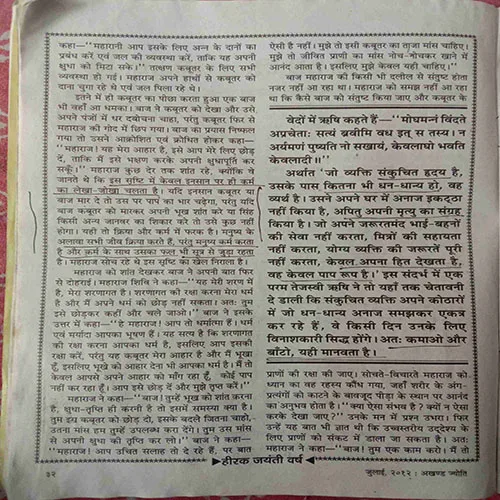 कहा—''महारानी आप इसके लिए अन्न के दानों का
प्रबंध करें एवं जल की व्यवस्था करें, ताकि यह अपनी
क्षुधा को मिटा सके।'' तत्क्षण कबूतर के लिए सभी
व्यवस्था हो गई। महाराज अपने हाथों से कबूतर को
दाना चुगा रहे थे एवं जल पिला रहे थे।
इतने में ही कबूतर का पीछा करता हुआ एक बाज
भी वहाँ आ धमका। बाज ने कबूतर को देखा और उसे
अपने पंजों में धर दबोचना चाहा, परंतु कबूतर फिर से
महाराज की गोद में छिप गया। बाज का प्रयास निष्फल
गया तो उसने आक्रोशित एवं क्रोधित होकर कहा—
''महाराज! यह मेरा आहार है, इसे आप मेरे लिए छोड़
दें, ताकि मैं इसे भक्षण करके अपनी क्षुधापूर्ति कर
सकूँ।'' महाराज कुछ देर तक शांत रहे, क्योंकि वे
जानते थे कि इस सृष्टि में केवल इनसान पर ही कर्म
का लेखा-जोखा चलता है। यदि इनसान कबूतर या
बाज मार दे तो उस पर पाप का भार चढ़ेगा, परंतु यदि
बाज कबूतर को मारकर अपनी भूख शांत करे या सिंह
किसी अन्य जानवर का शिकार करे तो उसे कुछ नहीं
होगा। यही तो क्रिया और कर्म में फरक है। मनुष्य के
अलावा सभी जीव क्रिया करते हैं, परंतु मनुष्य कर्म करता
है और कर्म के साथ उसका फल भी सूत्र से जुड़ा रहता
है। महाराज सोच रहे थे इस सृष्टि का खेल निराला है।
महाराज को शांत देखकर बाज ने अपनी बात फिर
से दोहराई। महाराज शिवि ने कहा—''यह मेरी शरण में
है, मेरा शरणागत है। शरणागत की रक्षा करना मेरा धर्म
है और मैं अपने धर्म को छोड़ नहीं सकता। अत: तुम
इसे छोड़कर कहीं और चले जाओ।'' बाज ने इसके
उत्तर में कहा—''हे महाराज! आप तो धर्मात्मा हैं। धर्म
एवं मर्यादा आपका भूषण हैं। यह सत्य है कि शरणागत
की रक्षा करना आपका धर्म है, इसलिए आप इसकी
रक्षा करें, परंतु यह कबूतर मेरा आहार है और मैं भूखा
हूँ, इसलिए भूखे को आहार देना भी आपका धर्म है। मैं तो
केवल आपसे अपने आहार को माँग रहा हूँ, कोई पाप
नहीं कर रहा हूँ। आप इसे छोड़ दें और मुझे तृप्त करें।''
महाराज ने कहा—''बाज! तुम्हें भूख को शांत करना
है, क्षुधा-तृप्ति ही करनी है तो इसमें समस्या क्या है।
तुम इस कबूतर को छोड़ दो, इसके बदले जितना चाहो,
उतना मांस हम तुम्हें उपलब्ध करा देंगे। तुम उस मांस
से अपनी क्षुधा की तृप्ति कर लो।'' बाज ने कहा—
''महाराज! आप उचित सलाह तो दे रहे हैं, पर बात
ऐसी है नहीं। मुझे तो इसी कबूतर का ताजा मांस चाहिए।
मुझे तो जीवित प्राणी का मांस नोच-नोचकर खाने में
आनंद आता है। इसलिए मुझे केवल यही चाहिए।''
बाज महाराज की किसी भी दलील से संतुष्ट होता
नजर नहीं आ रहा था। महाराज को समझ नहीं आ रहा
था कि कैसे बाज को संतुष्ट किया जाए और कबूतर के
वेदों में ऋषि कहते हैं—''मोघमन्नं विंदते
अप्रचेता: सत्यं ब्रवीमि वध इत् स तस्य। न
अर्यमणं पुष्यति नो सखायं, केवलाघो भवति
केवलादी॥''
अर्थात 'जो व्यक्ति संकुचित हृदय है,
उसके पास कितना भी धन-धान्य हो, वह
व्यर्थ है। उसने अपने घर में अनाज इकट्ठा
नहीं किया है, अपितु अपनी मृत्यु का संग्रह
किया है। जो अपने जरूरतमंद भाई-बहनों
की सेवा नहीं करता, मित्रों की सहायता
नहीं करता, योग्य व्यक्ति की जरूरतें पूरी
नहीं करता, केवल अपना हित देखता है,
वह केवल पाप रूप है।' इस संदर्भ में एक
परम तेजस्वी ऋषि ने तो यहाँ तक चेतावनी
दे डाली कि संकुचित व्यक्ति अपने कोठारों
में जो धन-धान्य अनाज समझकर एकत्र
कर रहे हैं, वे किसी दिन उनके लिए
विनाशकारी सिद्ध होंगे। अत: कमाओ और
बाँटो, यही मानवता है।
प्राणों की रक्षा की जाए। सोचते-विचारते महाराज को
ध्यान का वह रहस्य कौंध गया, जहाँ शरीर के अंग-
प्रत्यंगों को काटने के बावजूद पीड़ा के स्थान पर आनंद
का अनुभव होता है। ''क्या ऐसा संभव है? क्यों न ऐसा
करके देखा जाए?'' उनके मन में प्रश्न उभरा। फिर
उन्हें यह बात भी ज्ञात थी कि उच्चस्तरीय उद्देश्य के
लिए प्राणों को संकट में डाला जा सकता है। अत:
महाराज ने कहा—''बाज! तुम एक काम करो। मैं तो
३२
हीरक जयंती वर्ष
जुलाई, २०१२ : अखण्ड ज्योति